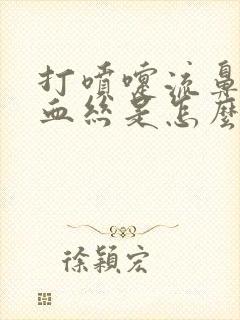 打噴嚏流鼻
血絲是怎麼
徐穎宏